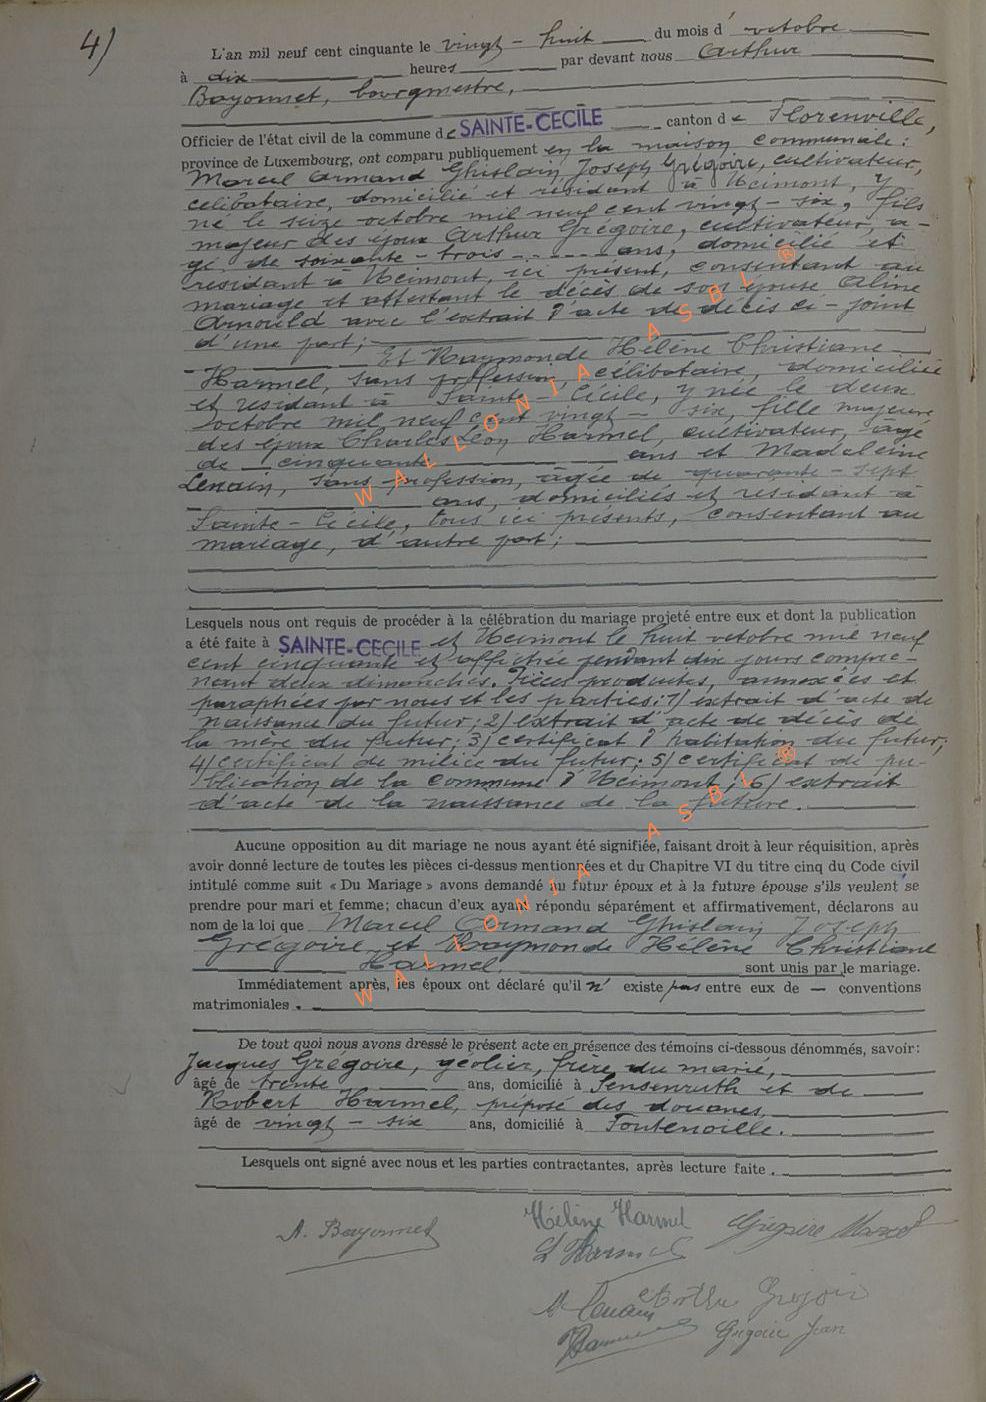 4)
L'an mil neuf cent cinquante le vingt - huit du mois d' octobre
à dix heures par devant nous Arthur
Bayonnet, bourgmestre,
Officier de l'état civil de la commune de SAINTE-CECILE canton de Florenville,
province de Luxembourg, ont comparu publiquement en la maison communale :
Marcel Armand Ghislain Joseph Grégoire, cultivateur,
célibataire, domicilié et résidant à Ucimont, y
né le seize octobre mil neuf cent vingt - six, fils
majeur des époux Arthur Grégoire, cultivateur, a-
gé de soixante - trois ans, domicilié et
résidant à Ucimont, ici présent, consentant au
mariage et attestant le décès de son épouse Aline
Arnould avec l'extrait d'acte de décès ci - joint
d'une part ;
Et Raymonde Hélène Christiane
Harmel, sans profession, célibataire, domiciliée
et résidant à Sainte - Cécile, y née le deux
octobre mil neuf cent vingt - six, fille majeure
des époux Charles Léon Harmel, cultivateur, agé
de cinquante ans et Madeleine
Lenain, sans profession, âgée de quarante - sept
ans, domiciliés et résidant à
Sainte - Cécile, tous ici présents, consentant au
mariage, d'autre part ;
Lesquels nous ont requis de procéder à la célébration du mariage projeté entre eux et dont la publication
a été faite à SAINTE-CECILE et Ucimont le huit octobre mil neuf
cent cinquante et affichée pendant dix jours compre-
nant deux dimanches. Pièces produites, annexées et
paraphées par nous et les parties : 1/ extrait d'acte de
naissance du futur ; 2/ extrait d'acte de décès de
la mère du futur ; 3/ certificat d'habitation du futur,
4/ certificat de milice du futur ; 5/ certificat de pu-
blication de la commune d'Ucimont ; 6/ extrait
d'acte de la naissance de la future.
Aucune opposition au dit mariage ne nous ayant été signifiée, faisant droit à leur réquisition, après
avoir donné lecture de toutes les pièces ci-dessus mentionnées et du Chapitre VI du titre cinq du Code civil
intitulé comme suit « Du Mariage » avons demandé au futur époux et à la future épouse s'ils veulent se
prendre pour mari et femme ; chacun d'eux ayant répondu séparément et affirmativement, déclarons au
nom de la loi que Marcel Armand Ghislain Joseph
Grégoire et Raymonde Hélène Christiane
Harmel. sont unis par le mariage.
Immédiatement après, les époux ont déclaré qu'il n' existe pas entre eux de — conventions
matrimoniales .
De tout quoi nous avons dressé le présent acte en présence des témoins ci-dessous dénommés, savoir :
Jacques Grégoire, géolier, frère du marié,
âgé de trente ans, domicilié à Sensenruth et de
Robert Harmel, préposé des douanes,
âgé de vingt - six ans, domicilié à Fontenoille.
Lesquels ont signé avec nous et les parties contractantes, après lecture faite .
A. Bayonnet Hélène Harmel Grégoire Marcel
L Harmel
M Lenain Arthur Grégoire
Harmel Grégoire Jean
WALLONIA ASBL ®
WALLONIA ASBL ®